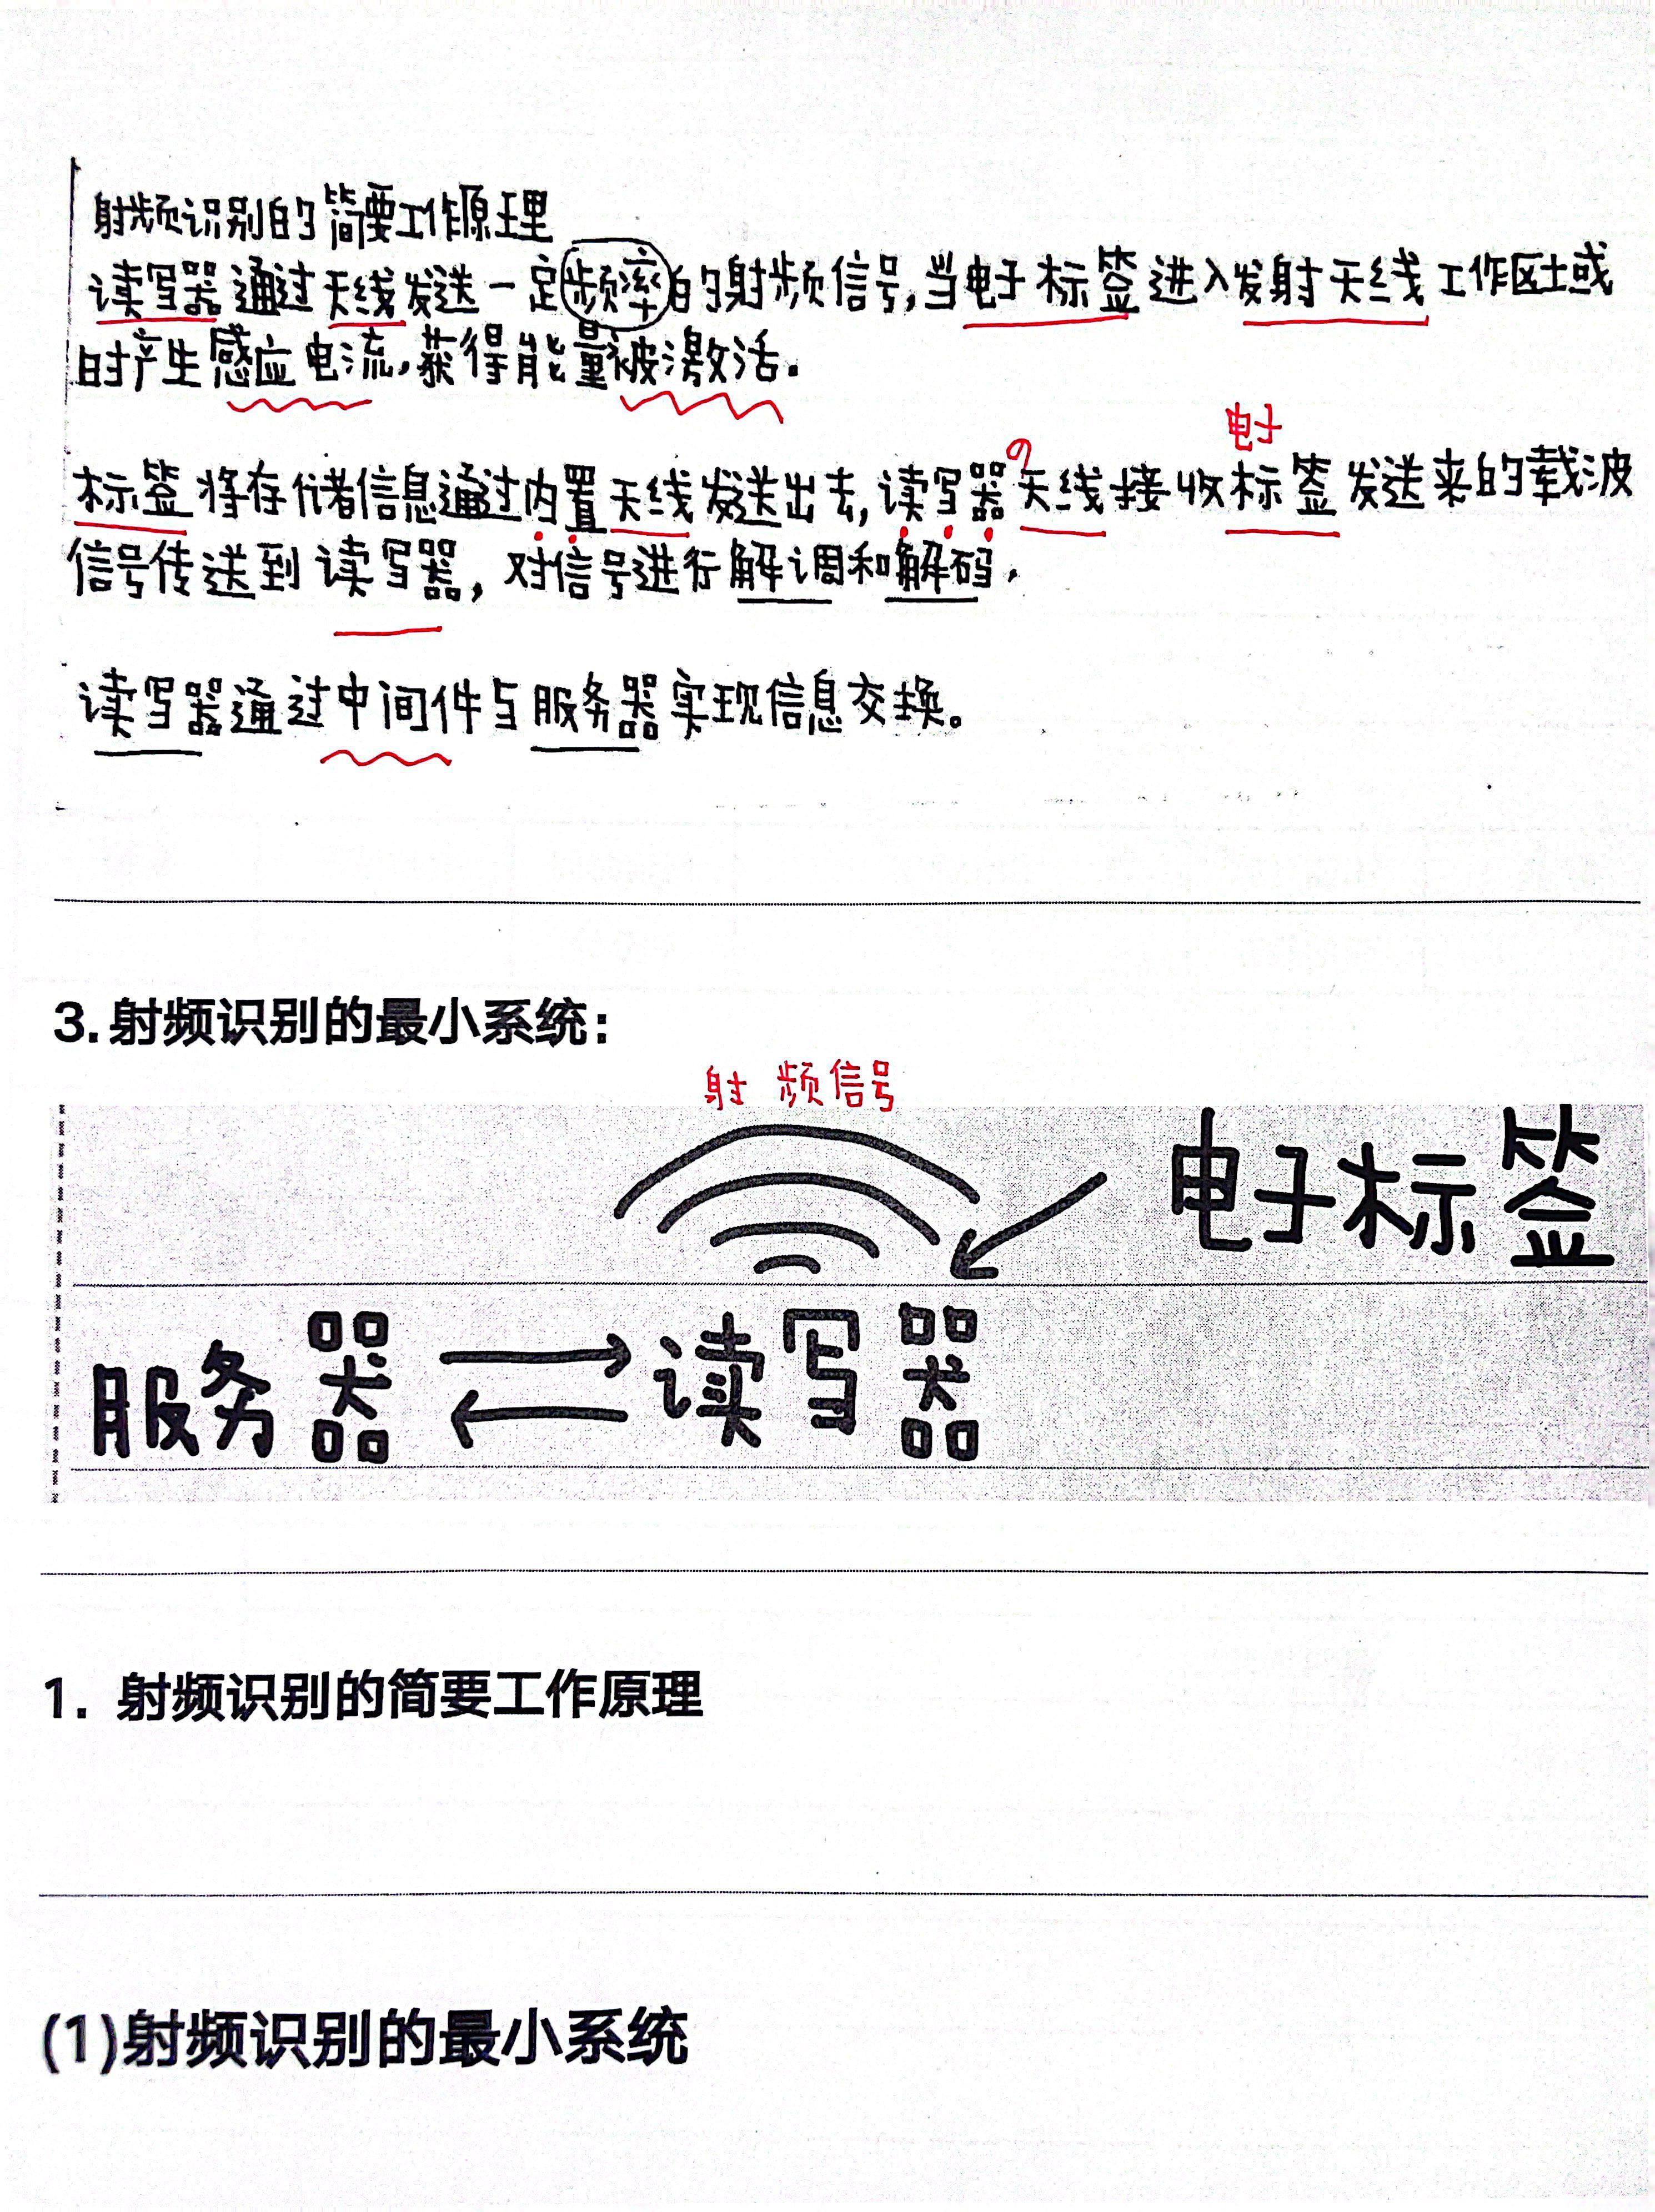 射频识别的简要工作原理
读写器通过天线发送一定频率的射频信号,当电子标签进入发射天线工作区域或
时产生感应电流,获得能量被激活。
电子
标签将存储信息通过内置天线发送出去,读写器天线接收标签发送来的载波
信号传送到读写器,对信号进行解调和解码.
读写器通过中间件与服务器实现信息交换。
3.射频识别的最小系统:
射频信号
电子标签
服务器 读写器
1. 射频识别的简要工作原理
(1)射频识别的最小系统